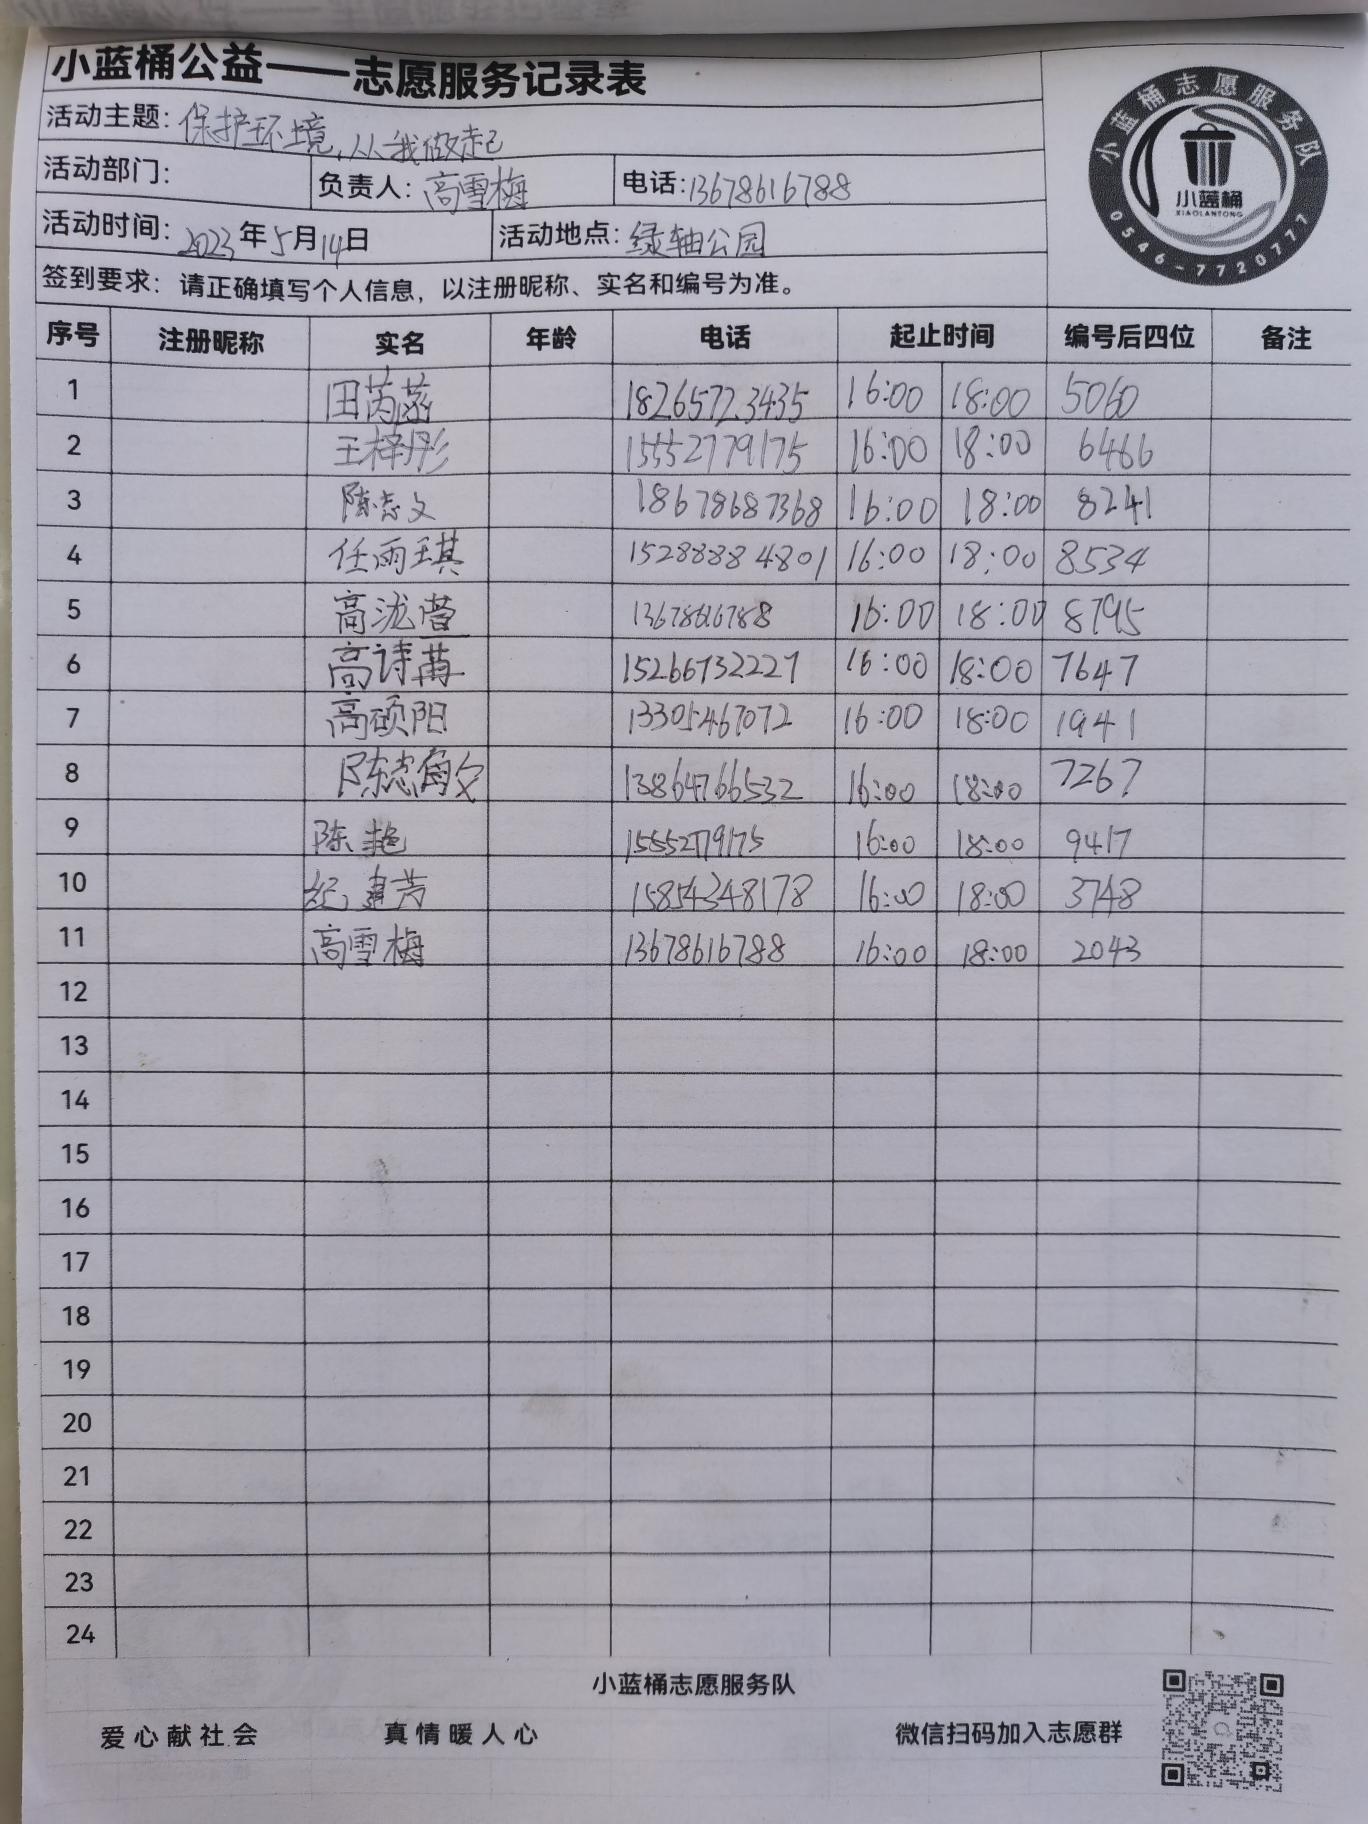 小蓝桶公益——志愿服务记录表
活动主题：保护环境，从我做起
活动部门： 负责人：高雪梅 电话：13678616788
活动时间：2023年5月14日 活动地点：绿轴公园
签到要求：请正确填写个人信息，以注册昵称、实名和编号为准。
小蓝桶志愿服务队
小蓝桶
XIAOLANTONG
0546-7720777
序号 注册昵称 实名 年龄 电话 起止时间 编号后四位 备注
1 田芮菡 18265723435 16:00 18:00 5060
2 王梓彤 15552779175 16:00 18:00 6466
3 陈志文 18678687368 16:00 18:00 8241
4 任雨琪 15288884801 16:00 18:00 8534
5 高泷萱 13678616788 16:00 18:00 8795
6 高诗苒 15266732227 16:00 18:00 7647
7 高硕阳 13301467072 16:00 18:00 1941
8 陈志 13864766532 16:00 18:00 7267
9 陈艳 15552779175 16:00 18:00 9417
10 纪建芳 15854348178 16:00 18:00 3748
11 高雪梅 13678616788 16:00 18:00 2043
12
13
14
15
16
17
18
19
20
21
22
23
24
小蓝桶志愿服务队
爱心献社会 真情暖人心 微信扫码加入志愿群